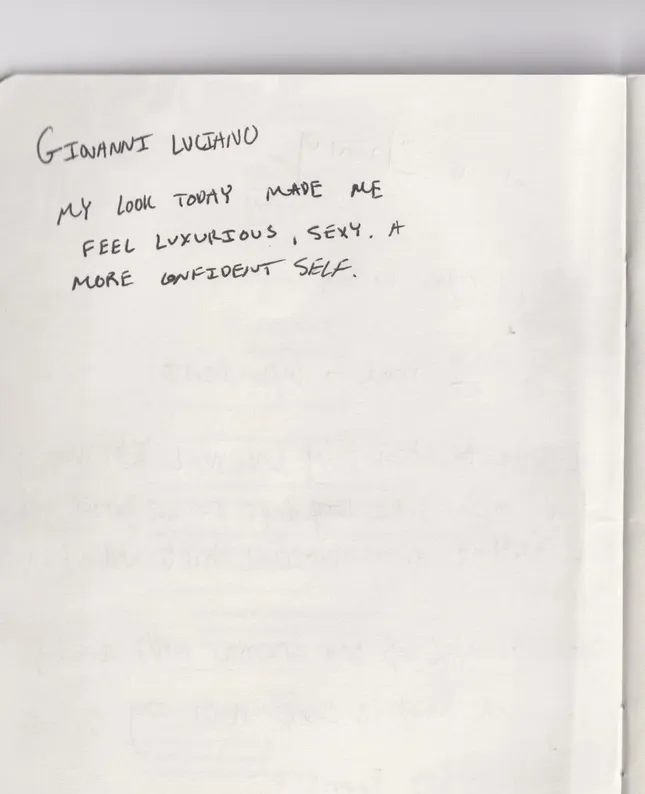 GIOVANNI LUCIANO
MY LOOK TODAY MADE ME
FEEL LUXURIOUS, SEXY. A
MORE CONFIDENT SELF.